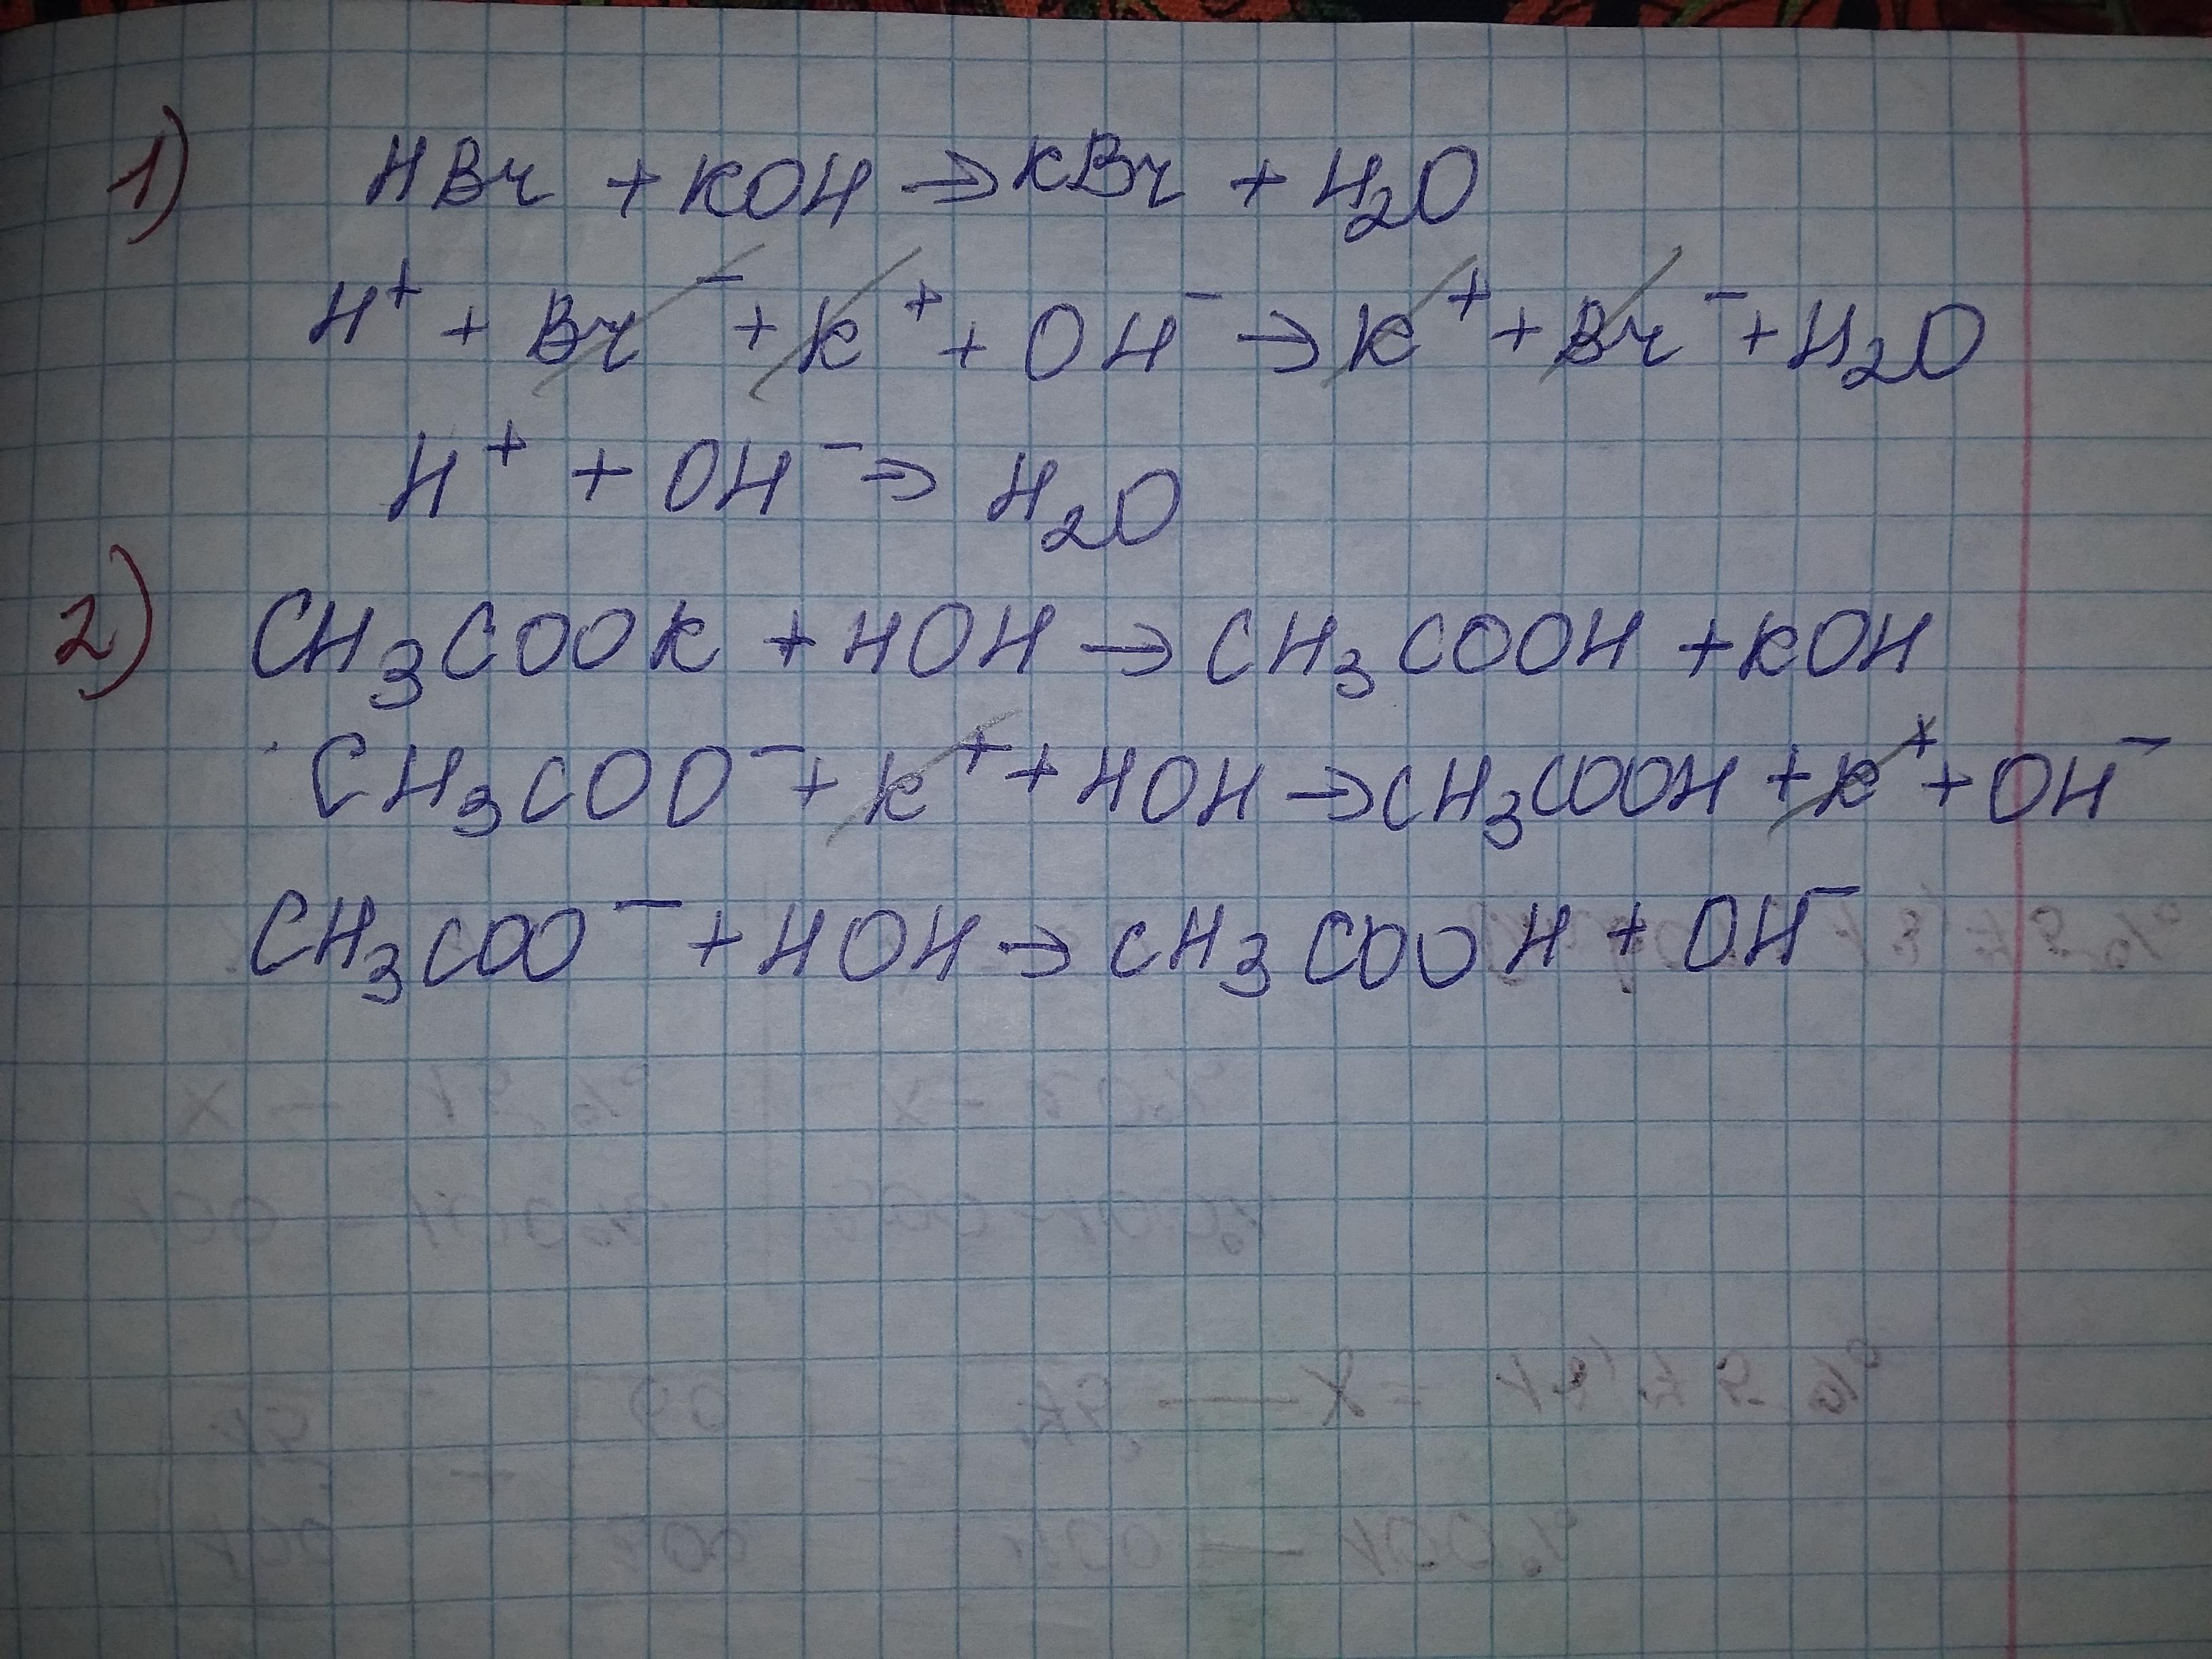 1) HBr + KOH → KBr + H₂O
H⁺ + Br⁻ + K⁺ + OH⁻ → K⁺ + Br⁻ + H₂O
H⁺ + OH⁻ → H₂O
2) CH₃COOK + HOH → CH₃COOH + KOH
CH₃COO⁻ + K⁺ + HOH → CH₃COOH + K⁺ + OH⁻
CH₃COO⁻ + HOH → CH₃COOH + OH⁻